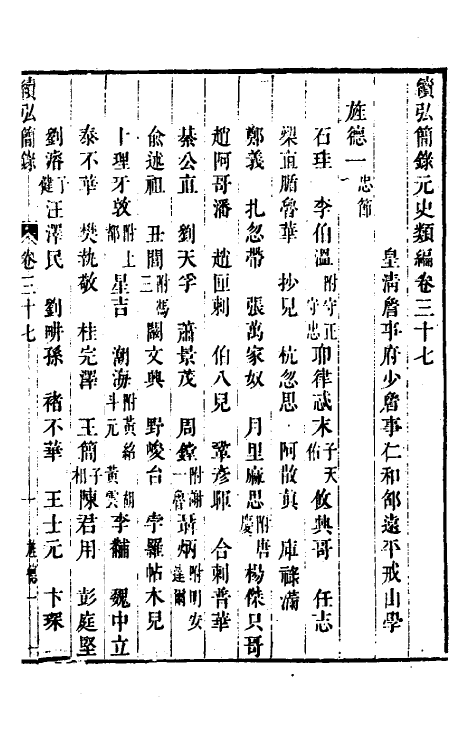 續弘簡錄元史類編卷三十七
皇清詹事府少詹事仁和邵遠平戒山學
旌德一忠節
石珪 李伯溫附守正守忠 耶律忒末子天佑 攸興哥 任志
梁直脂魯華 抄兒 杭忽思 阿散真 庫祿滿
鄭義 扎忽帶 張萬家奴 月里麻思附唐慶 楊傑只哥
趙阿哥潘 趙匣剌 伯八兒 鞏彥暉 合剌普華
綦公直 劉天孚 蕭景茂 周鏜附謝一魯 聶炳附明安達爾
俞述祖 丑閭附馮三 闞文興 野峻台 孛羅帖木兒
卜理牙敦附上都 星吉 湖海附黃紹胡斗元黃雲 李黼 魏中立
泰不華 樊執敬 桂完澤 王簡子相 陳君用 彭庭堅
劉濬子健 汪澤民 劉畊孫 褚不華 王士元 卞琛
續弘簡錄 卷三十七 一 旌德一